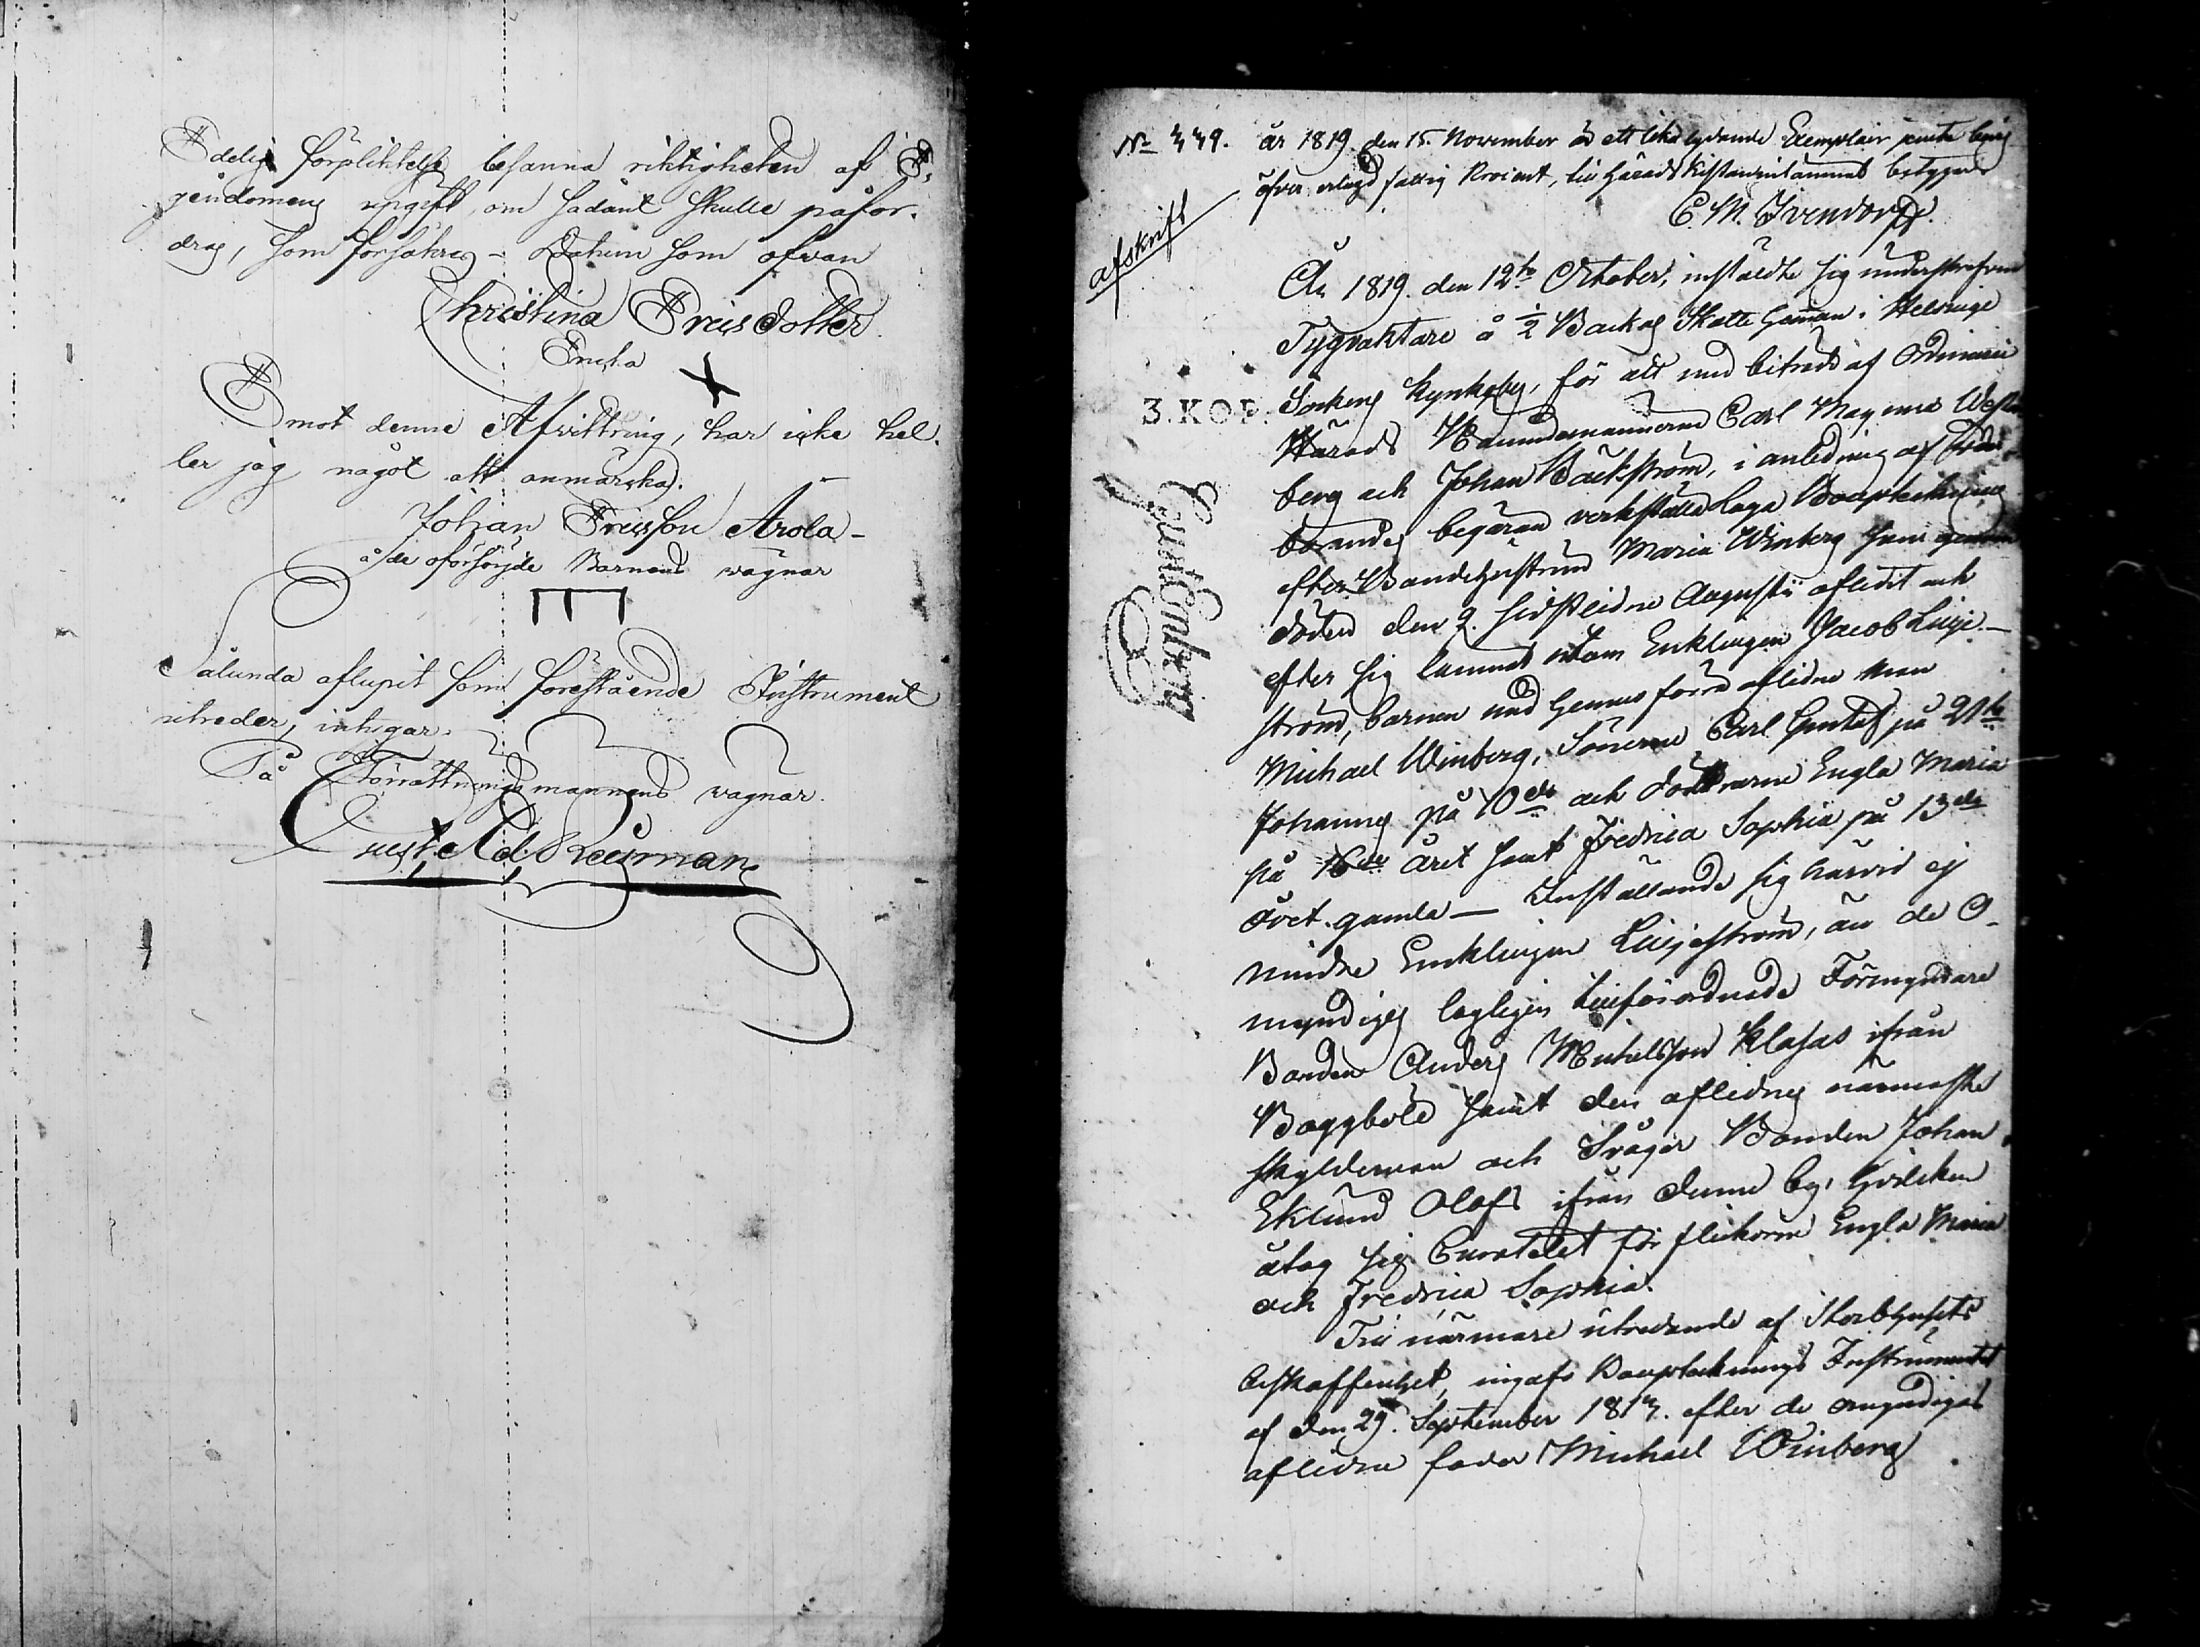 Edelig förpliktelse besanna riktigheten af E,
gendomens upgift, om sådant skulle påfor-
dras, som försäkras – Datum som ofvan
Christina Ericsdotter
Encka
Emot denne Afvittring, har icke hel-
ler jag något att anmärcka.
Johan Ericsson Arola –
å de oförsörjde Barnens wägnar
Sålunda aflupit som förestående Instrument
utreder, intygar.
På Förrättningsmannens wägnar.
Gust. Ad. Reisman
No 449. år 1819. den 15. November är ett lika lydande Exemplair jemte bevis
öfver erlagd fattig Procent, till Härads Rättens
C. M.
afskrift
År 1819. den 12te October, instäldte sig undertecknad
Tygvaktare å 1/2 Backas Skatte Hemman i Helsinge
3. KOP. Sockens Kyrkoby, för att med biträde af Ordinarie
Härads Nämndemannen Carl Magnus West-
berg och Johan Bäckström, i anledning af
begäran verkställa Laga Bouptekning
efter Bondehustrun Maria Winberg som genom
döden den 2. sidstledne Augusti aflidit och
efter sig lämnat utom Enklingen Jacob Lilje-
ström, barnen med hennes förra aflidne man
Michael Winberg, Sönerne Carl Gustaf på 21te
Johannes på 10de och döttrarne Engla Maria
på 16de året samt Fredrica Sophia på 13de
året gamla – Inställande sig härvid ej
mindre Enklingen Liljeström, än de O-
myndiges lagligen tillförordnade Förmyndare
Bonden Anders Michelsson Klasas ifrån
Baggböle samt den aflidnes närmaste
skyldeman och Svåger Bonden Johan
Eklund Olofs ifrån denne by, hvilcken
åtog sig Curatelet för flickorne Engla Maria
och Fredrica Sophia.
Till närmare utredande af Sterbhusets
beskaffenhet, ingafs Bouptecknings Instrumentet
af den 29. September 1817. efter de omyndigas
aflidne fader Michael Winberg